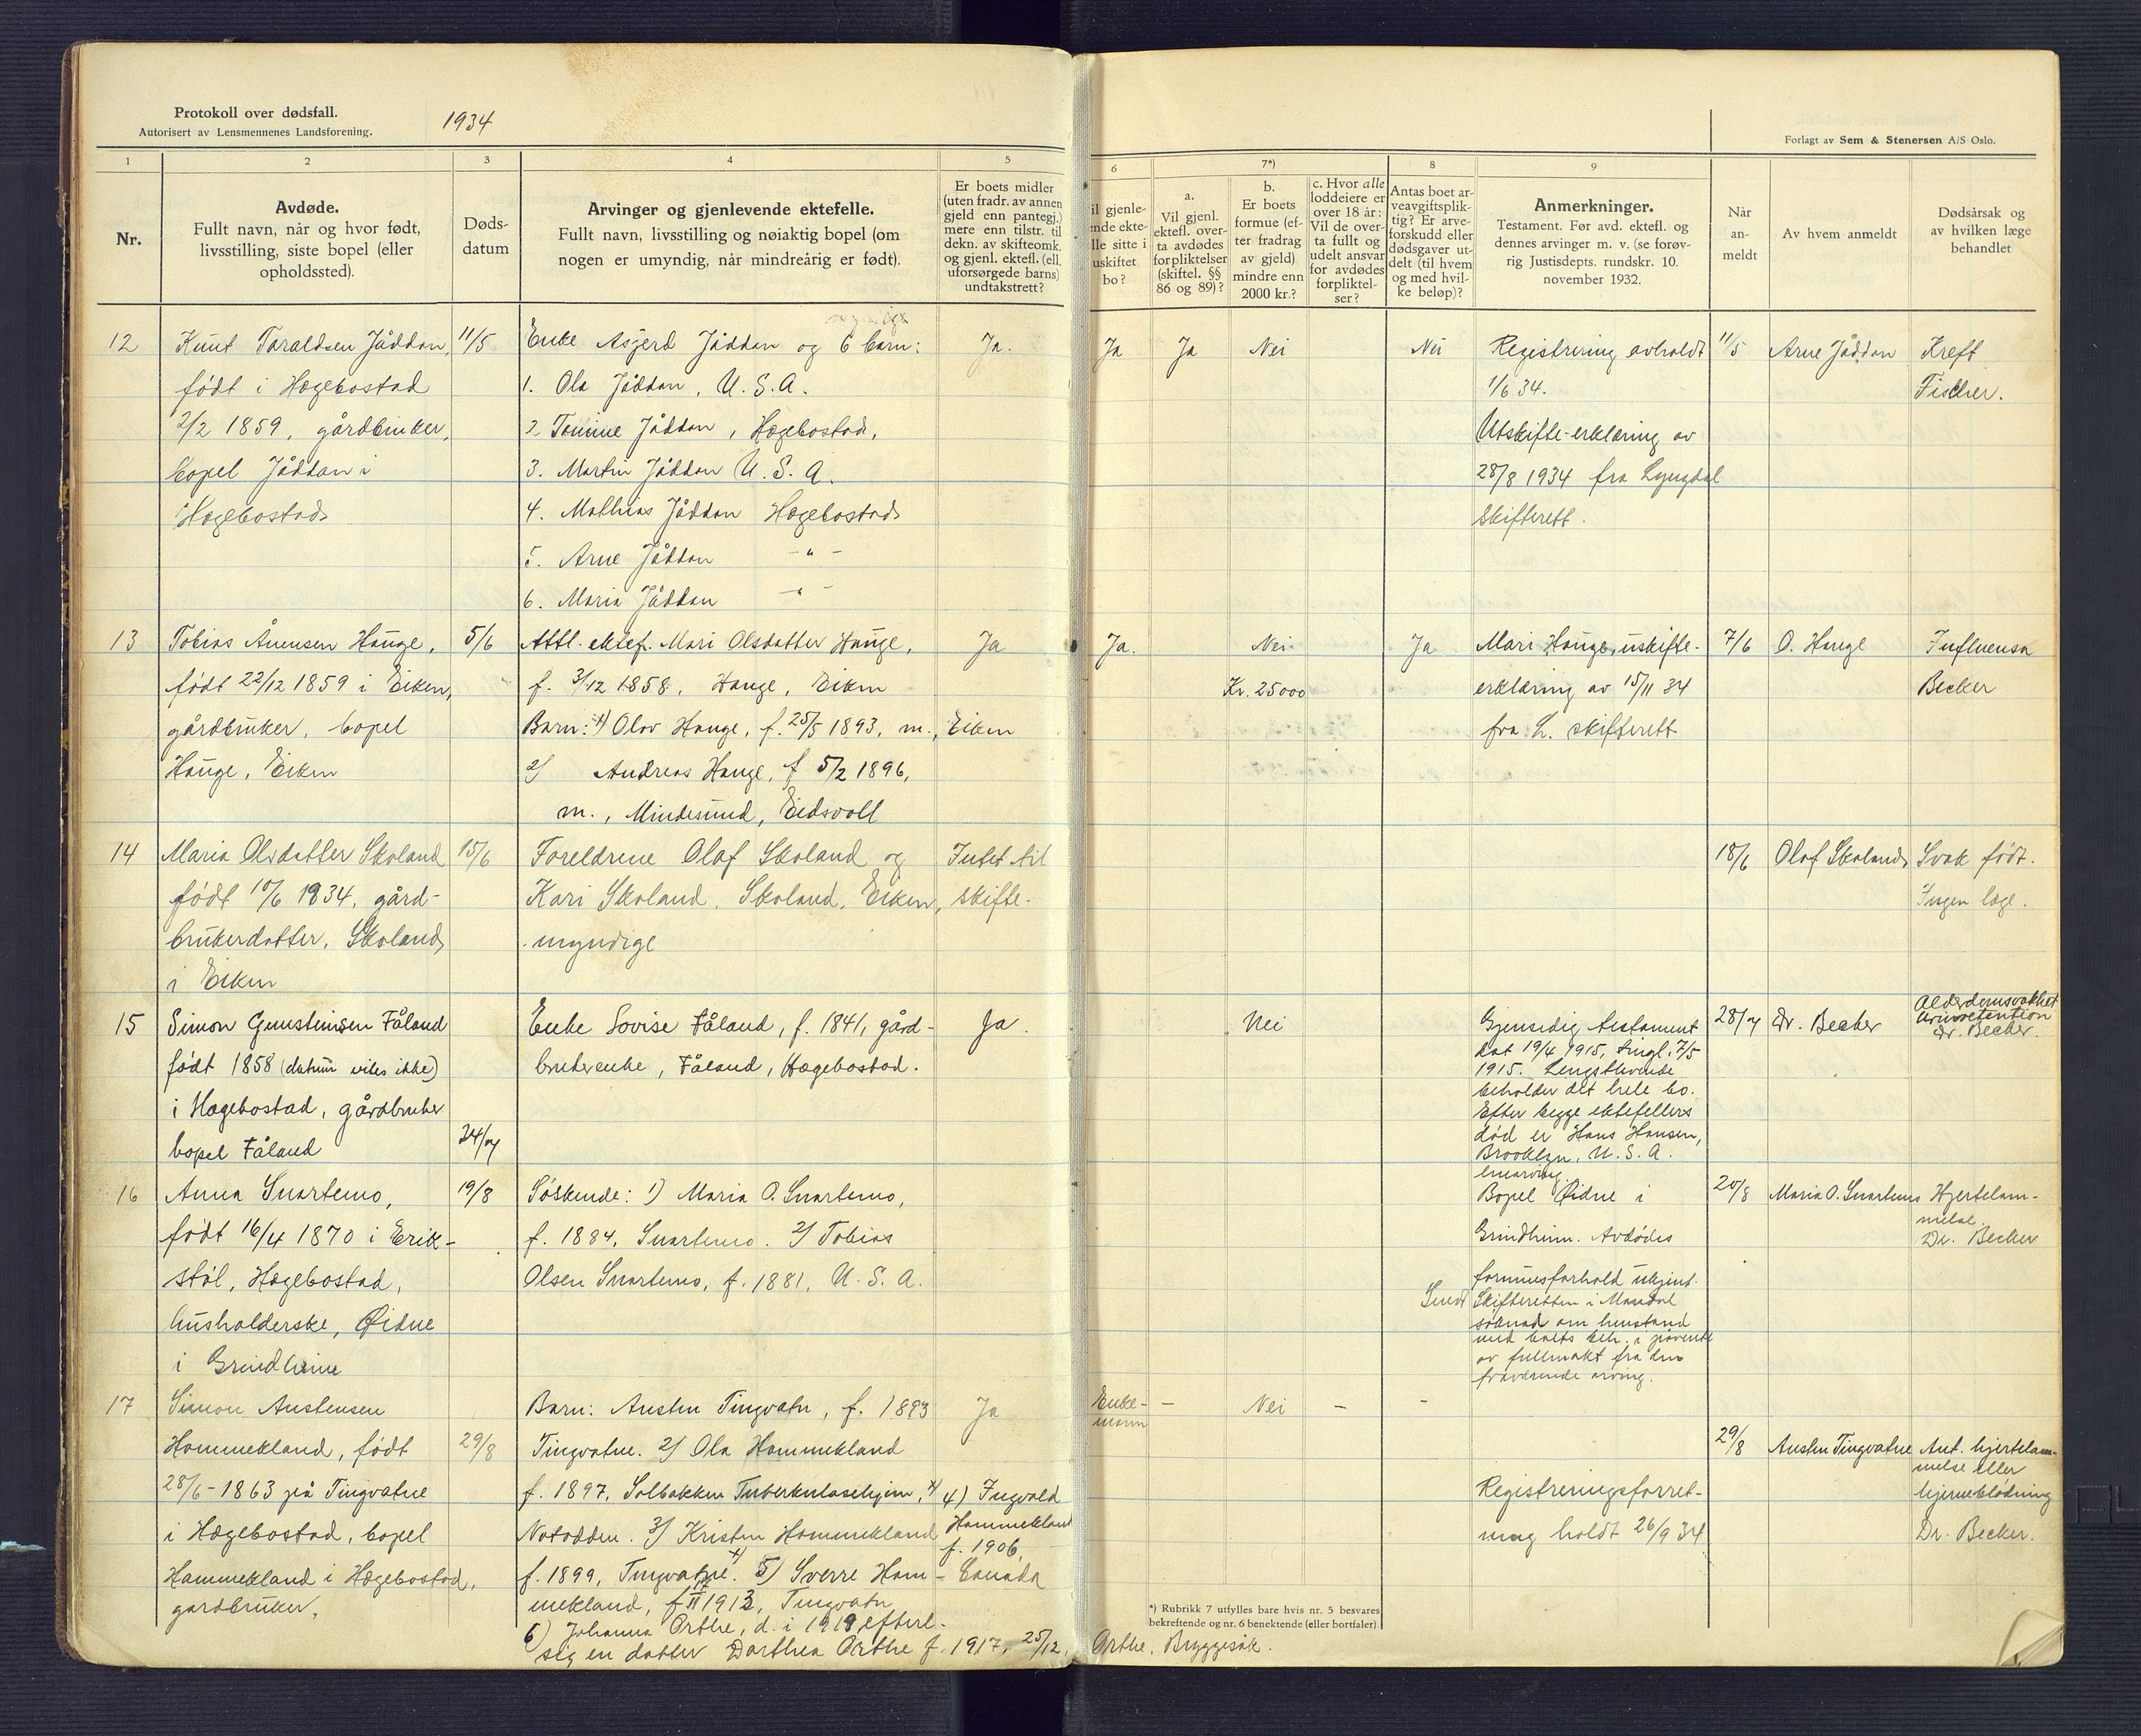 Protokoll over dødsfall.
Autorisert av Lensmennenes Landsforening.
1934
Forlagt av Sem & Stenersen A/S Oslo.
1
2
3
4
5
6
7*)
8
9
Nr.
Avdøde.
Fullt navn, når og hvor født,
livsstilling, siste bopel (eller
opholdssted).
Døds-
datum
Arvinger og gjenlevende ektefelle.
Fullt navn, livsstilling og nøiaktig bopel (om
nogen er umyndig, når mindreårig er født).
Er boets midler
(uten fradr. av annen
gjeld enn pantegj.)
mere enn tilstr. til
dekn. av skifteomk.
og gjenl. ektefl. (ell.
uforsørgede barns)
undtakstrett?
il gjenle-
nde ekte-
lle sitte i
uskiftet
bo?
a.
Vil gjenl.
ektefl. over-
ta avdødes
forpliktelser
(skiftel. §§
86 og 89)?
b.
Er boets
formue (ef-
ter fradrag
av gjeld)
mindre enn
2000 kr.?
c. Hvor alle
loddeiere er
over 18 år:
Vil de over-
ta fullt og
udelt ansvar
for avdødes
forpliktel-
ser?
Antas boet ar-
veavgiftsplik-
tig? Er arve-
forskudd eller
dødsgaver ut-
delt (til hvem
og med hvil-
ke beløp)?
Anmerkninger.
Testament. Før avd. ektefl. og
dennes arvinger m. v. (se forøv-
rig Justisdepts. rundskr. 10.
november 1932.
Når
an-
meldt
Av hvem anmeldt
Dødsårsak og
av hvilken læge
behandlet
12
Knut Taraldsen Jåddan,
født i Hægebostad
2/2 1859, gårdbruker,
bopel Jåddan i
Hægebostad
11/5
Enke Asjerd Jåddan og 6 barn:
1. Ola Jåddan, U.S.A.
2 Tomine Jåddan, Hægebostad,
3. Martin Jåddan U.S.A.
4. Mathias Jåddan Hægebostad
5. Arne Jåddan - " -
6. Maria Jåddan - " -
Ja.
Ja
Ja
Nei
Nei
Registrering avholdt
1/6 34.
Utskifte-erklæring av
28/8 1934 fra Lyngdal
skifterett.
11/5
Arne Jåddan
Kreft
Fischer.
13
Tobias Ånensen Hauge,
født 22/12 1859 i Eiken,
gårdbruker, bopel
Hauge, Eiken
5/6
Attl. ektef. Mari Olsdatter Hauge,
f. 3/12 1858, Hauge, Eiken
Barn: 1) Olav Hauge, f. 25/5 1893, m., Eiken
2) Andreas Hauge, f 5/2 1896,
m., Mindesund, Eidsvoll
Ja
Ja.
Nei
Kr. 25000
Ja
Mari Hauge, uskifte-
erklæring av 15/11 34
fra L. skifterett
7/6
O. Hauge
Influensa
Becker
14
Maria Olsdatter Skoland
født 10/6 1934, gård-
brukerdatter, Skoland
i Eiken
15/6
Foreldrene Olaf Skoland og
Kari Skoland, Skoland, Eiken,
myndige
Intet til
skifte.
18/6
Olaf Skoland
Svak født.
Ingen læge.
15
Simon Gunsteinsen Fåland
født 1858 (datum vites ikke)
i Hægebostad, gårdbruker
bopel Fåland
24/7
Enke Lovise Fåland, f. 1841, gård-
brukerenke, Fåland, Hægebostad.
Ja.
Nei
Gjensidig testament
dat 19/4 1915, tingl. 7/5
1915. Lengstlevende
beholder det hele bo.
Efter begge ektefellers
død er Hans Hansen,
Brooklyn, U.S.A.
enearving.
28/7
Dr. Becker
Alderdomsvakhet
Urinretention
Dr. Becker.
16
Anna Snartemo,
født 16/4 1870 i Erik-
støl, Hægebostad,
husholderske, Øidne
i Grindheim
19/8
Søskende: 1) Maria O. Snartemo,
f. 1884, Snartemo. 2) Tobias
Olsen Snartemo, f. 1881, U.S.A.
Bopel Øidne i
Grindheim. Avdødes
formuesforhold ukjent.
Send Skifteretten i Mandal
søknad om henstand
med boets beh. i påvente
av fullmakt fra den
fraværende arving.
20/8
Maria O. Snartemo
Hjertelam-
melse.
Dr. Becker
17
Simon Austensen
Hommekland, født
28/6-1863 på Tingvatne
i Hægebostad, bopel
Hammekland i Hægebostad,
gardbruker.
29/8
Barn: Austen Tingvatn, f. 1893
Tingvatne. 2) Ola Hommekland
f. 1897, Solbakken Tuberkulosehjem,
Notodden. 3) Kristen Hommekland
f. 1899, Tingvatne. 5) Sverre Hom-
mekland, f 1913, Tingvatn
4) Ingvald
Hommekland
f. 1906,
Canada
6) Johanna Orthe, d. i 1919, efterl.
sig en datter Dorthea Orthe f. 1917, 25/12, Orthe, Bryggesåk.
Ja
Enke-
mann
-
Nei
-
-
Registreringsforret-
ning holdt 26/9 34
29/8
Austen Tingvatne
Ant. hjertelam-
melse eller
hjerneblødning
Dr. Becker.
*) Rubrikk 7 utfylles bare hvis nr. 5 besvares
bekreftende og nr. 6 benektende (eller bortfaler)